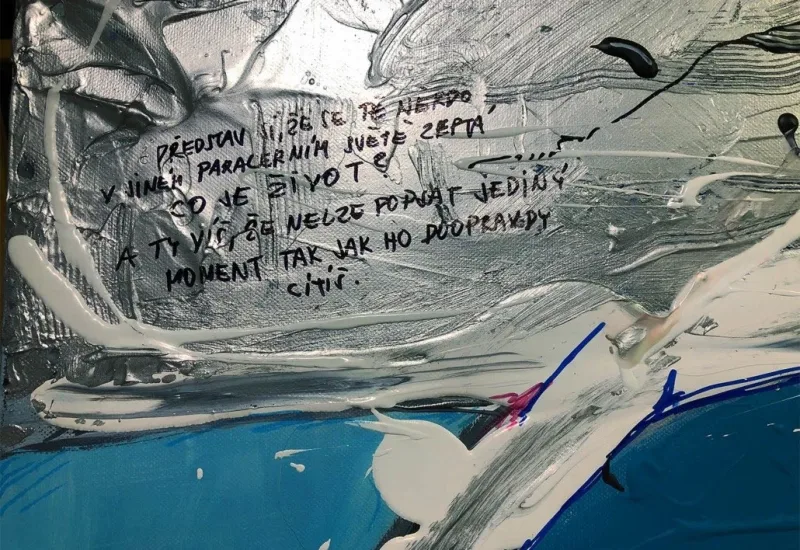 PŘEDSTAV SI, ŽE SE TĚ NĚKDO,
V JINÉM PARALERNÍM SVĚTĚ ZEPTÁ
CO JE ŽIVOT?
A TY VÍŠ, ŽE NELZE POPSAT JEDINÝ
MOMENT TAK JAK HO DOOPRAVDY
CÍTÍŠ.